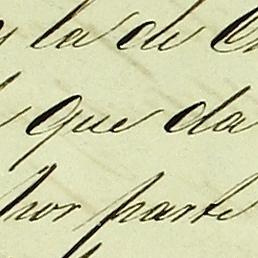 y la de
que da
por parte